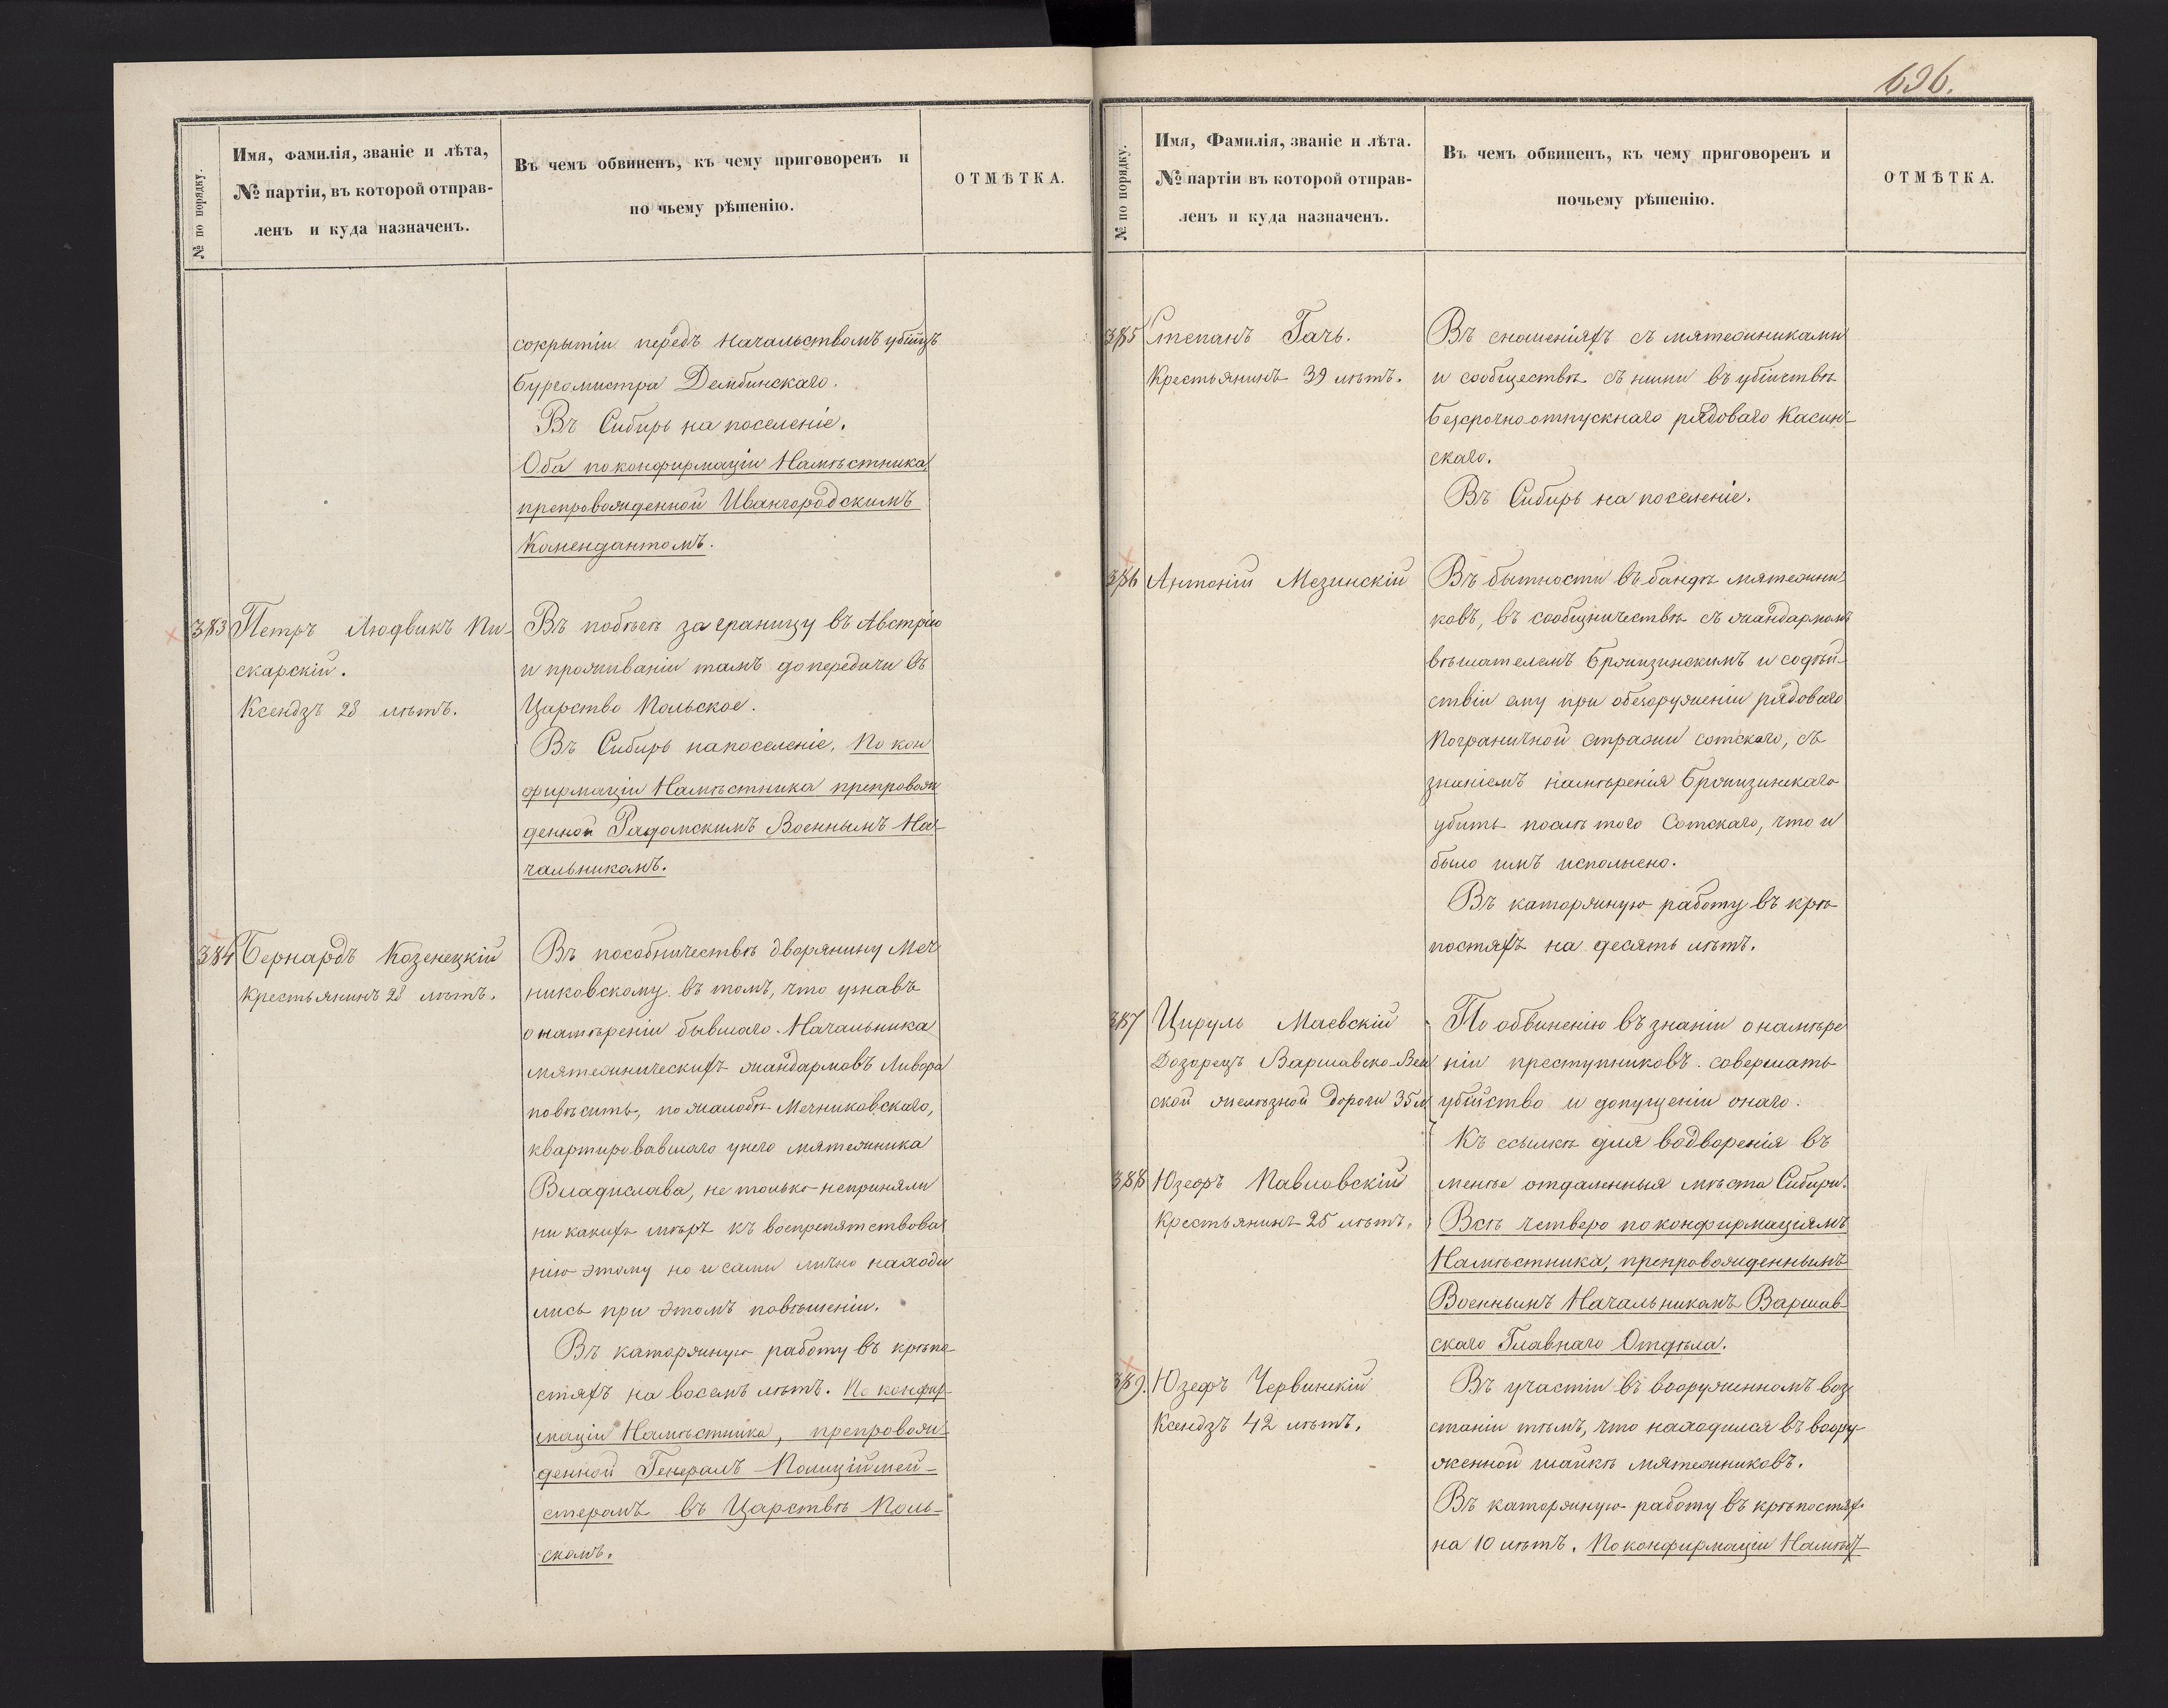 696.
№ по порядку.
Имя, фамилія, званіе и лѣта,
№ партіи, въ которой отправ-
ленъ и куда назначенъ.
Въ чемъ обвиненъ, къ чему приговоренъ и
по чьему рѣшенію.
ОТМѢТКА.
сокрытіи передъ Начальствомъ убійцъ
Бургомистра Дембинскаго.
Въ Сибирь на поселеніе.
Оба по конфирмаціи Намѣстника,
препровожденной Ивангородскимъ
Комендантомъ.
383 Петръ Людвикъ Пи-
скарскій.
Ксендзъ 28 лѣтъ.
Въ побѣгѣ за границу въ Австрію
и проживаніи тамъ до передачи въ
Царство Польское.
Въ Сибирь на поселеніе. По кон
фирмаціи Намѣстника препровож
денной Радомскимъ Военнымъ На-
чальникомъ.
384 Бернардъ Козенецкій
Крестьянинъ 28 лѣтъ.
Въ пособничествѣ дворянину Меч
никовскому въ томъ, что узнавъ
о намѣреніи бывшаго Начальника
мятежническихъ жандармовъ Ливора
повѣсить, по жалобѣ Мечниковскаго,
квартировавшаго у него мятежника
Владислава, не только не приняли
ни какихъ мѣръ къ воспрепятствова
нію этому но и сами лично находи
лись при этомъ повѣшеніи.
Въ каторжную работу въ крѣпо-
стяхъ на восемь лѣтъ. По конфир-
маціи Намѣстника, препровож-
денной Генералъ-Полиціймей-
стеромъ въ Царствѣ Поль-
скомъ.
№ по порядку.
Имя, Фамилія, званіе и лѣта.
№ партіи въ которой отправ-
ленъ и куда назначенъ.
Въ чемъ обвиненъ, къ чему приговоренъ и
почьему рѣшенію.
ОТМѢТКА.
385 Степанъ Гачъ.
Крестьянинъ 39 лѣтъ.
Въ сношеніяхъ съ мятежниками
и сообществѣ съ ними въ убійствѣ
Безсрочноотпускнаго рядоваго Касин-
скаго.
Въ Сибирь на поселеніе.
386 Антоній Мезинскій
Въ бытности въ бандѣ мятежни
ковъ, въ сообщничествѣ съ жандармомъ
вѣшателемъ Бржизинскимъ и содѣй-
ствіи ему при обезоруженіи рядоваго
Пограничной стражи сотскаго, съ
знаніемъ намѣренія Бржизинскаго
убить послѣ того Сотскаго, что и
было имъ исполнено.
Въ каторжную работу въ крѣ-
постяхъ на десять лѣтъ.
387 Цируль Маевскій
Дозорецъ Варшавско-Вен
ской желѣзной дороги 35 л
По обвиненію въ знаніи о намѣре
ніи преступниковъ совершать
убійство и допущеніи онаго.
Къ ссылкѣ для водворенія въ
388 Юзефъ Павловскій
Крестьянинъ 25 лѣтъ.
менѣе отдаленныя мѣста Сибири.
Всѣ четверо по конфирмаціямъ
Намѣстника, препровожденнымъ
Военнымъ Начальникомъ Варшав-
скаго Главнаго Отдѣла.
389. Юзефъ Червинскій
Ксендзъ 42 лѣтъ.
Въ участіи въ вооруженномъ воз
станіи тѣмъ, что находился въ воору-
женной шайкѣ мятежниковъ.
Въ каторжную работу въ крѣпостях
на 10 лѣтъ. По конфирмаціи Намѣст-